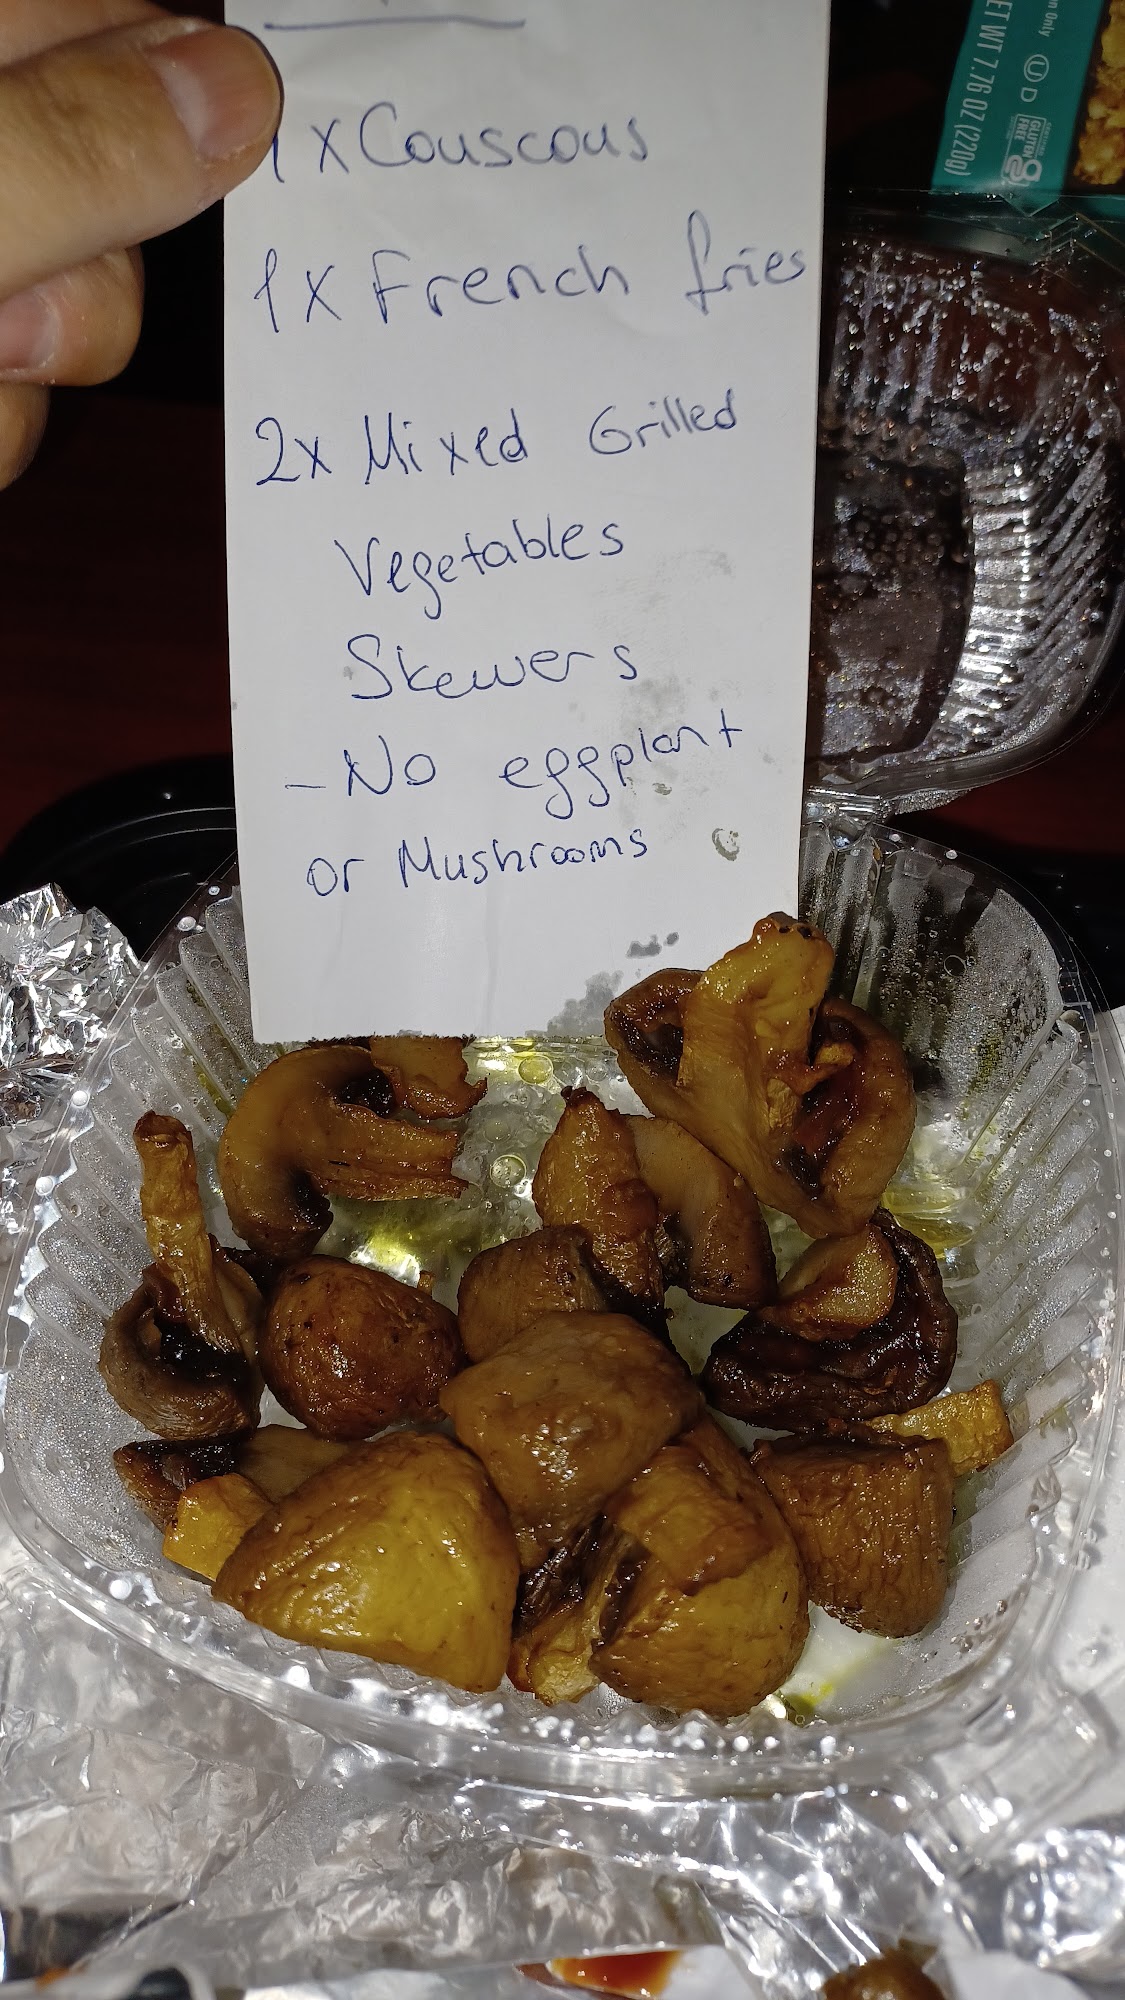 1 x Couscous
1 x French fries
2x Mixed Grilled
Vegetables
Skewers
- No eggplant
or Mushrooms
n Only
ET WT 7.76 OZ (220g)
U D
GLUTEN
FREE